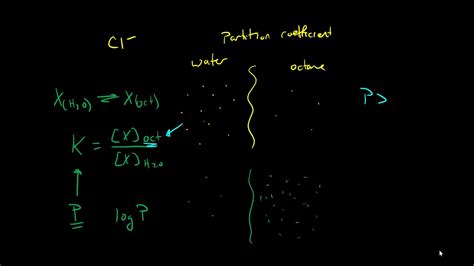 Cl⁻
Partition coefficient
water
octane
X(H₂O) ⇌ X(oct)
P>
K = [X]oct / [X]H₂O
P
log P